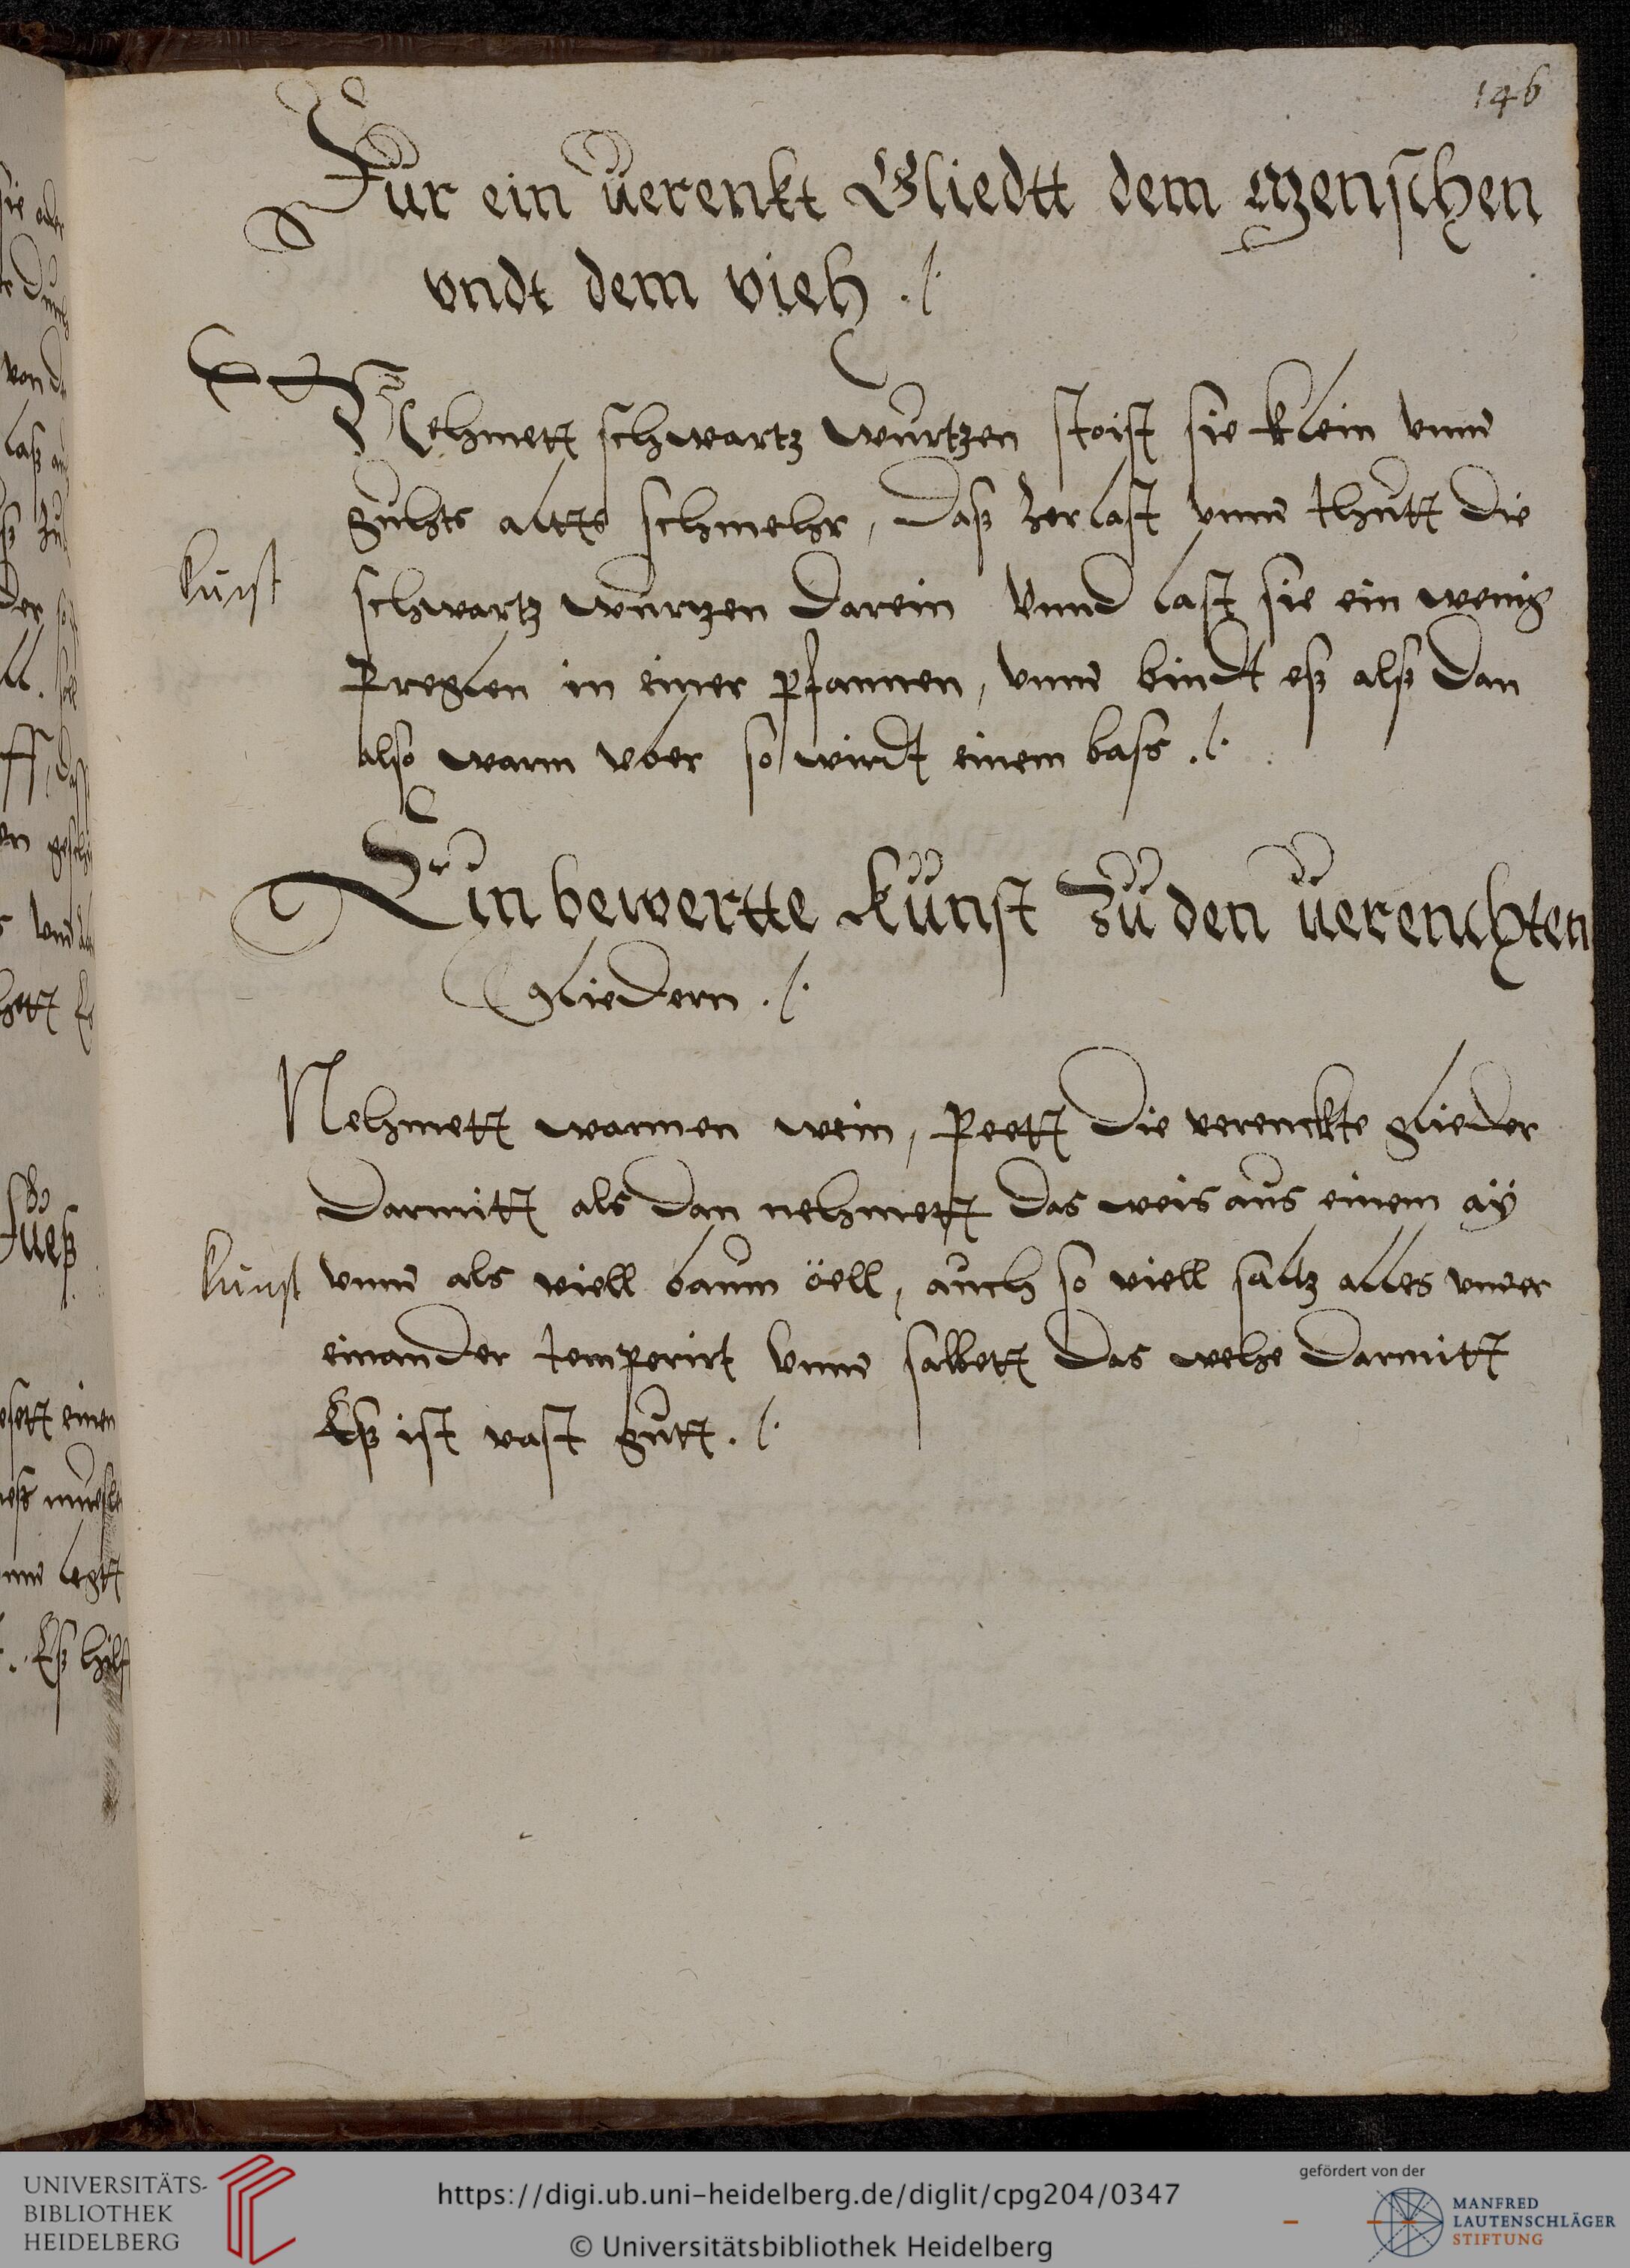 146
Fur ein verenkt Gliedtt dem Menschen
vndt dem vieh ./.
Nehmett schwartz wurtzen stoist sie klein vnnd
guhts altts schmehr, daß zerlast vnnd thutt die
Kunst
schwartz wurzen darein vnnd last sie ein wenig
Preglen in einer pfannen, vnnd bindt eß alß dan
also warm vber so wirdt einem bass ./.
Ein bewertte Kunst Zu den verenchten
Gliedern ./.
Nehmett warmen wein, Peett die verenckte glieder
darmitt als dan nehmett das weis aus einem aÿ
Kunst
vnnd als viell baum öell, auch so viell saltz alles vnder
einander temperirt vnnd salbett das wehe darmitt
Eß ist vast gutt ./.
UNIVERSITÄTS-
BIBLIOTHEK
HEIDELBERG
https://digi.ub.uni-heidelberg.de/diglit/cpg204/0347
© Universitätsbibliothek Heidelberg
gefördert von der
MANFRED
LAUTENSCHLÄGER
STIFTUNG